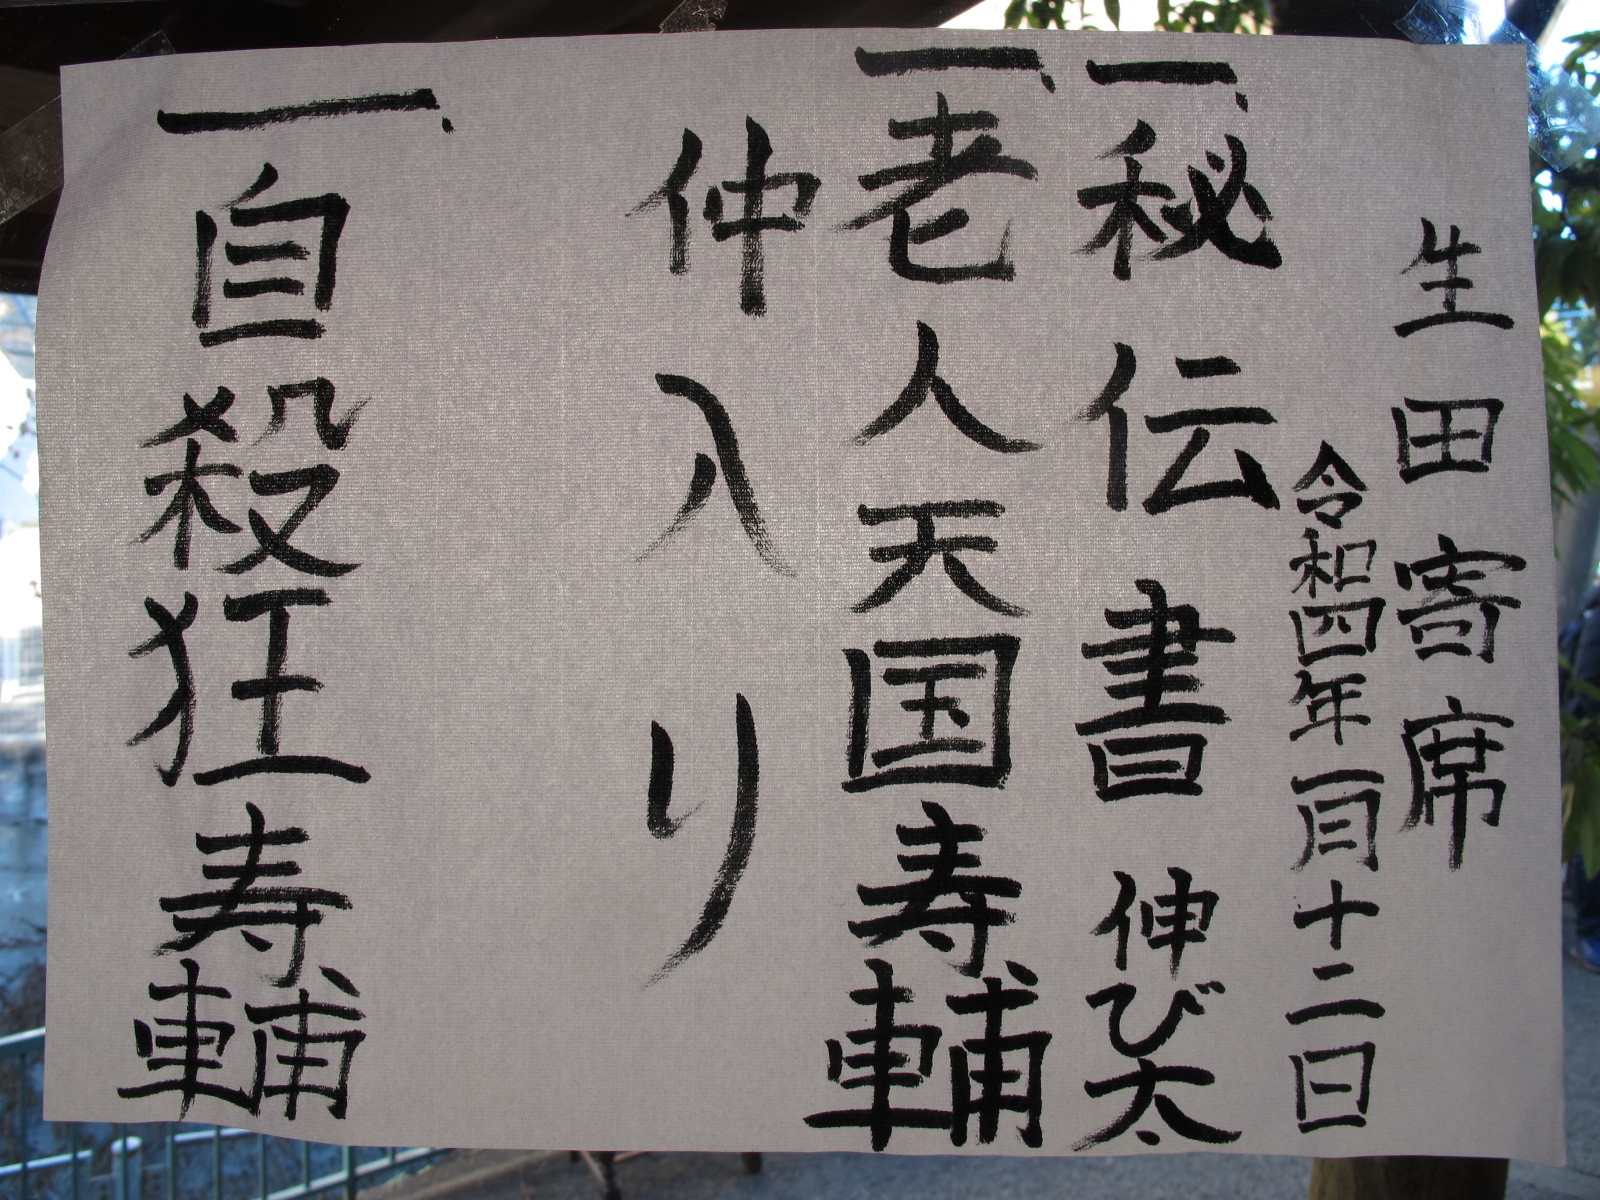 生田寄席
令和四年一月十二日
一、秘伝書 伸び太
一、老人天国 寿輔
仲入り
一、自殺狂 寿輔